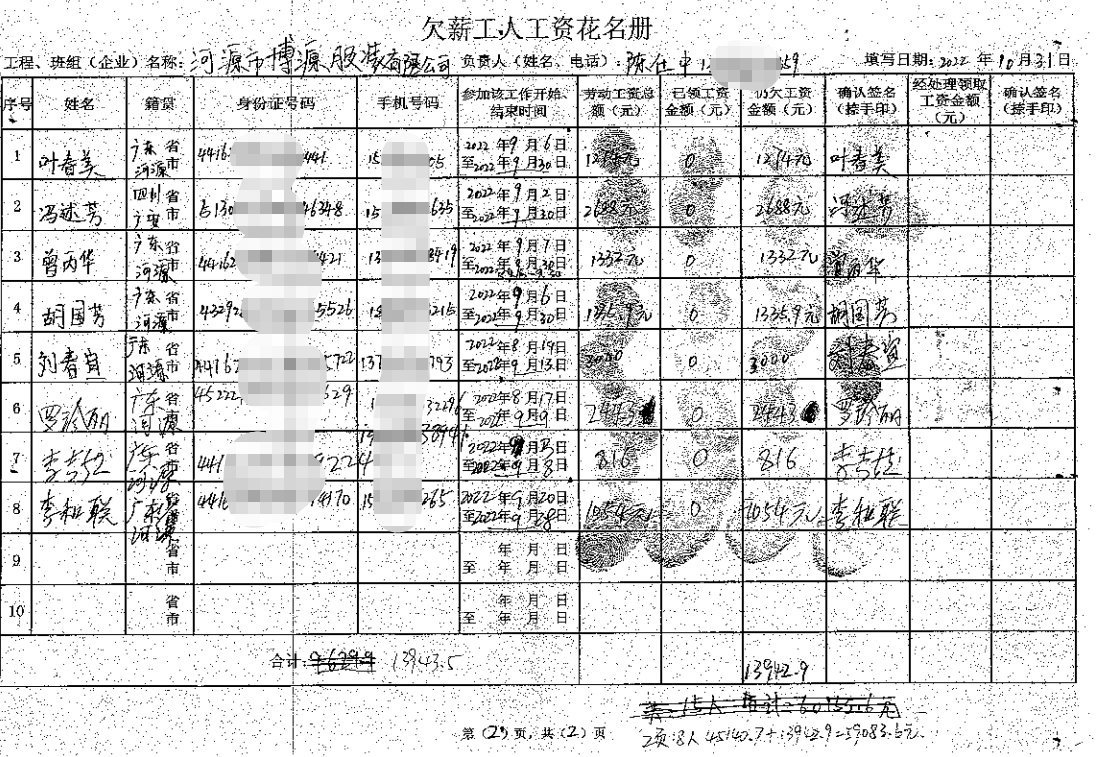 欠薪工人工资花名册
工程、班组(企业)名称:河源市博源服装有限公司 负责人(姓名、电话):陈仕中 59 填写日期:2022年10月31日
序号 姓名 籍贯 身份证号码 手机号码 参加该工作开始、结束时间 劳动工资总额(元) 已领工资金额(元) 仍欠工资金额(元) 确认签名(捺手印) 经处理领取工资金额(元) 确认签名(捺手印)
1 叶春美 广东省河源市 4416 441 15 05 2022年9月6日至2022年9月30日 1274元 0 1274元 叶春美
2 冯述芳 四川省广安市 5130 46348 15 635 2022年9月2日至2022年9月30日 2688元 0 2688元 冯述芳
3 曾丙华 广东省河源市 44162 421 13 8419 2022年9月7日至2022年9月30日 1332元 0 1332元 曾丙华
4 胡国芳 广东省河源市 43292 5526 215 2022年9月6日至2022年9月30日 1335.9元 0 1335.9元 胡国芳
5 刘春宜 广东省河源市 44162 5722 137 793 2022年8月19日至2022年9月13日 3000 0 3000 刘春宜
6 罗珍丽 广东省河源市 45222 629 1 3229 2022年8月17日至2022年9月9日 2443 0 2443 罗珍丽
7 广东省河源市 441 224 至2022年9月8日 816 0 816
8 李和联 广东省河源市 4416 4170 15 265 2022年9月20日至2022年9月28日 1054元 0 1054元 李和联
9 省市 年 月 日至 年 月 日
10 省市 年 月 日至 年 月 日
合计: 13943.5 13942.9
共:15人 合计:60155.6元
第(2)页,共(2)页
2页:8人 45140.7+13942.9=59083.6元